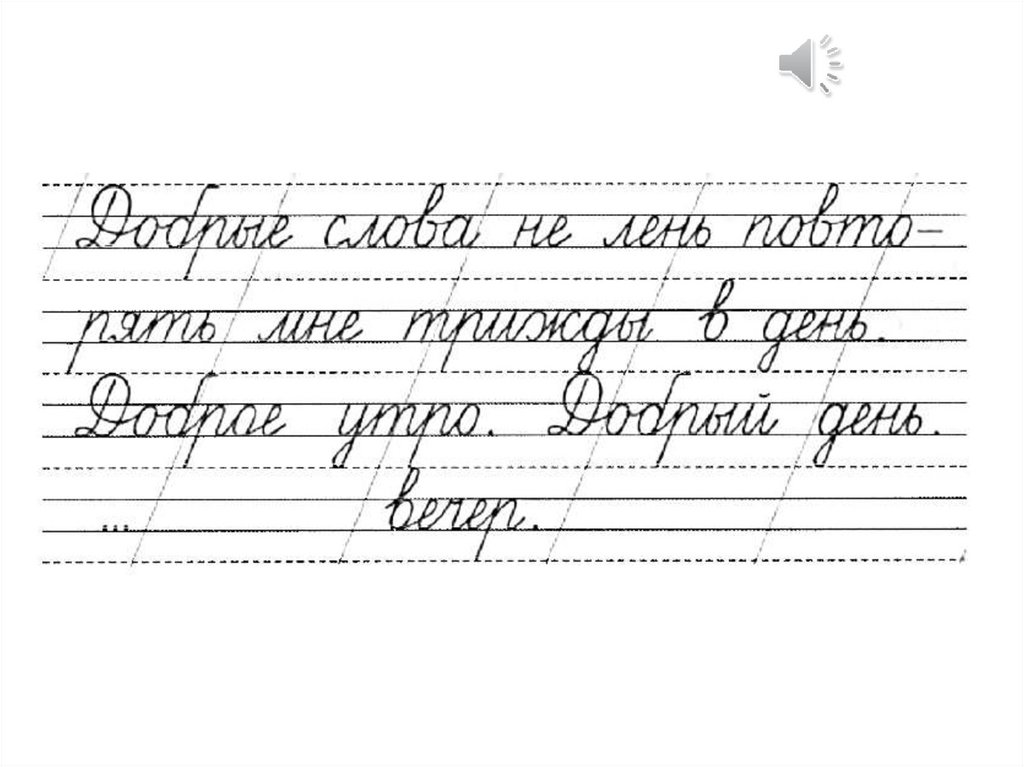 Добрые слова не лень повто-
рять мне трижды в день.
Доброе утро. Добрый день.
... вечер.